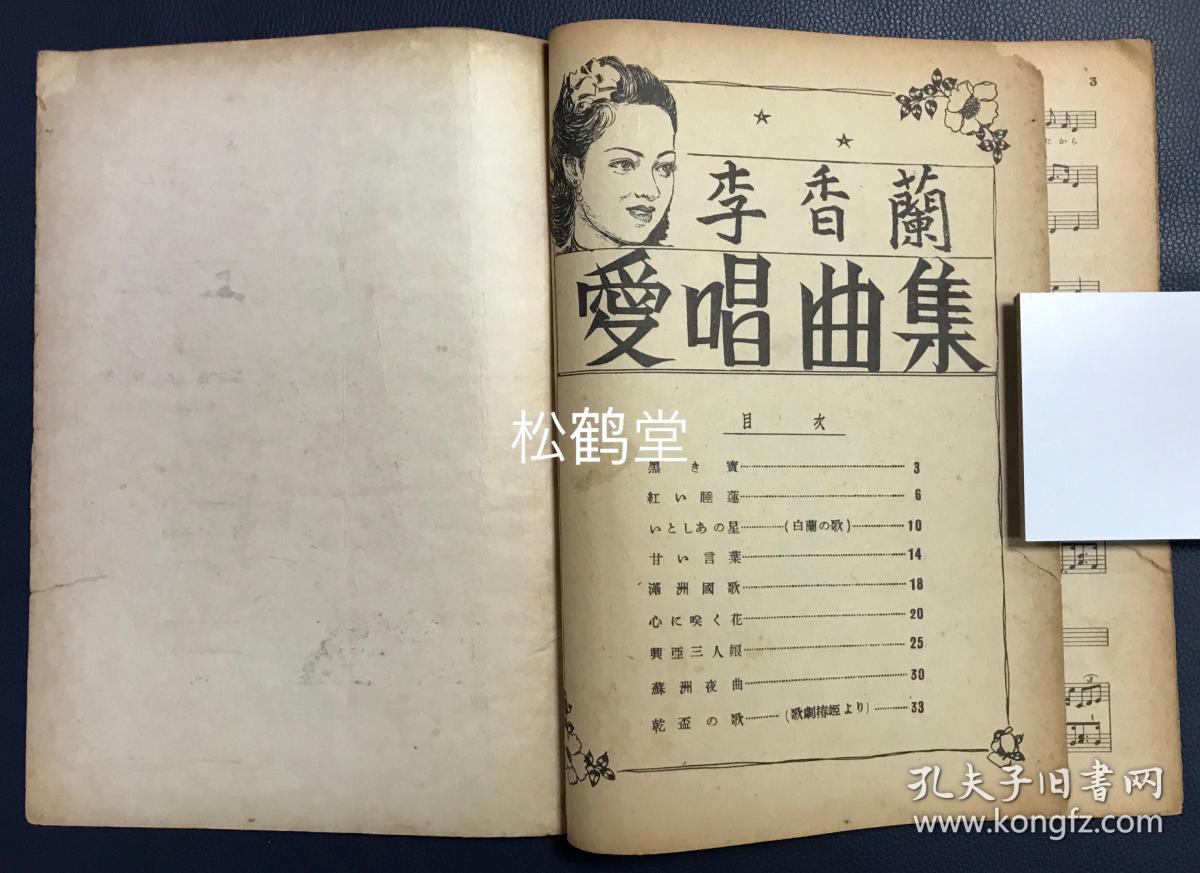 李香蘭
愛唱曲集
目次
黒き寶 3
紅い睡蓮 6
いとしあの星 (白蘭の歌) 10
甘い言葉 14
滿洲國歌 18
心に咲く花 20
興亞三人娘 25
蘇洲夜曲 30
乾盃の歌 (歌劇椿姫より) 33
3
たから
3
松鹤堂
孔夫子旧书网
www.kongfz.com